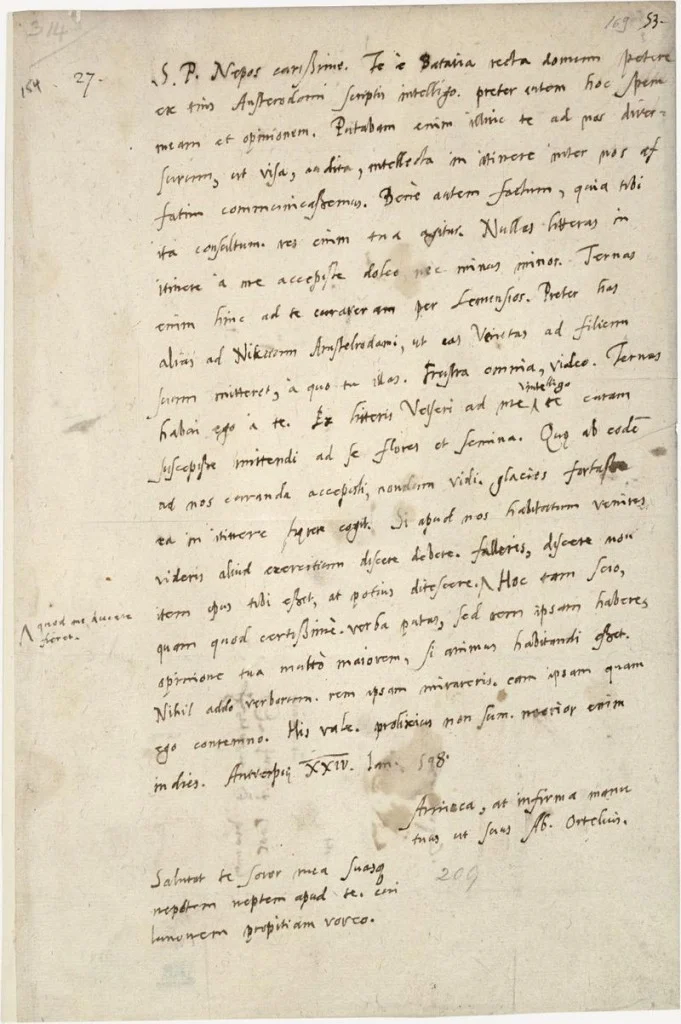 314
169 53.
184
27.
S. P. Nepos carissime. Te è Batavia recta domum petere
ex tuis Amsterodami scriptis intelligo. preter autem hoc spem
meam et opinionem. Putabam enim illinc te ad nos diver-
surum, ut visa, audita, intellecta in itinere inter nos af
fatim communicassemus. Benè autem factum, quia tibi
ita consultum. res enim tua agitur. Nullas litteras in
itinere à me accepisse doleo nec minus miror. Ternas
enim hinc ad te curaveram per Preter has
alias ad Amstelrodami, ut eas Venetas ad filium
suum mitteret, à quo tu illas. Frustra omnia, video. Ternas
habui ego à te. Ex litteris Velseri ad me ^ te curam
intelligo
suscepisse mittendi ad se flores et semina. Quę ab eodē
ad nos curanda accepisti, nondum vidi. glacies fortasse
ea in itinere egit. Si apud nos habitatum venires
videris aliud exercitium discere debere. falleris, discere non
item opus tibi esset, at potius ditescere. ^ Hoc tam scio,
^ quod me ducere
fieret.
quam quod certissimè. verba putas, sed rem ipsam haberes
opinione tua multò maiorem, si animus habitandi esset.
Nihil addo verborum. rem ipsam mirareris. eam ipsam quam
ego contemno. His vale. prolixius non sum. enim
in dies. Antverpię XXIV. Ian. 598.
Amica, at infirma manu
tuus ut suus Ab. Ortelius.
209
Salutat te soror mea suasq
nepotem neptem apud te. Cui
Iunonem propitiam voveo.